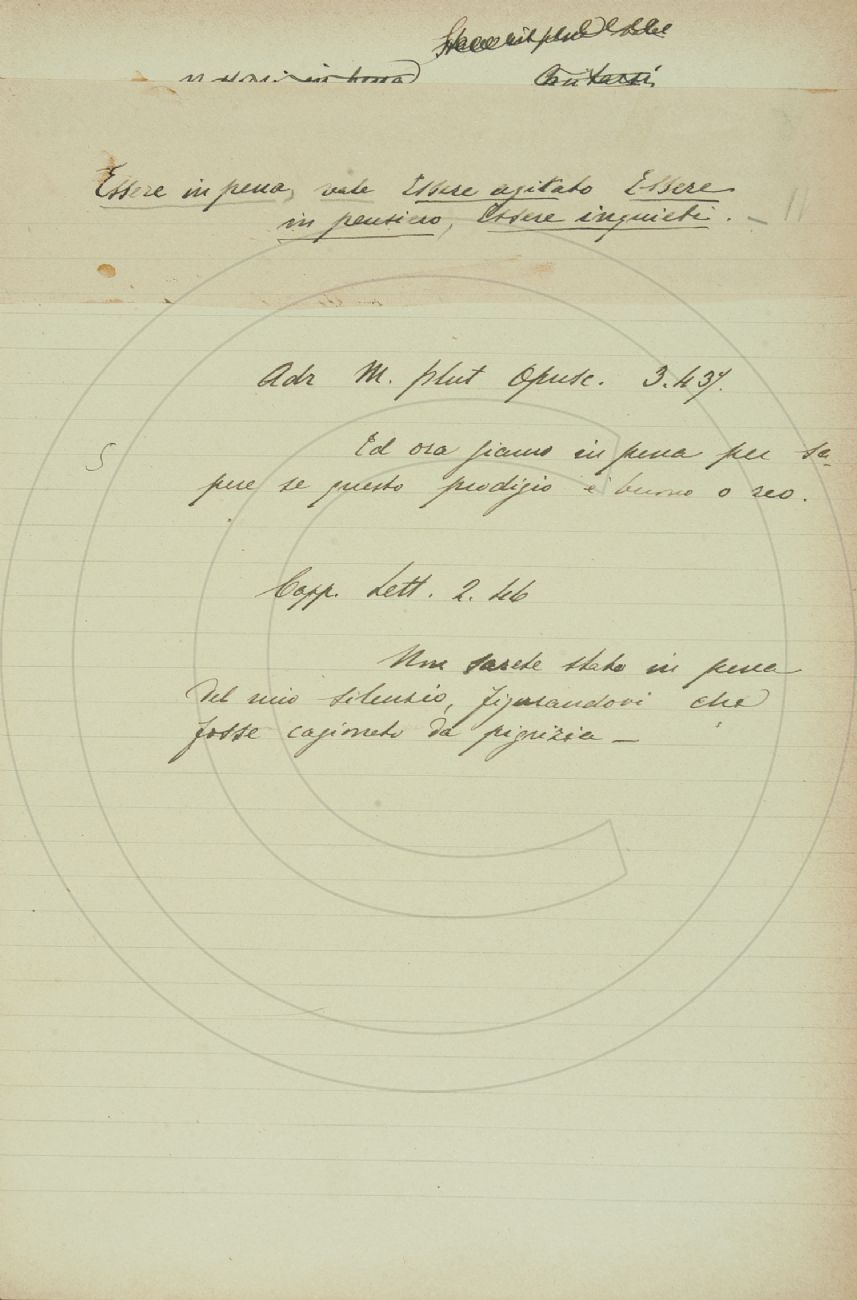 Essere in pena, vale Essere agitato Essere
in pensiero, Essere inquieti. —
Adr. M. Plut Opusc. 3.437.
Ed ora siamo in pena per sa-
pere se questo prodigio è buono o reo.
Capp. Lett. 2. 46
Non sarete stato in pena
del mio silenzio, figurandovi che
fosse cagionato da pigrizia —